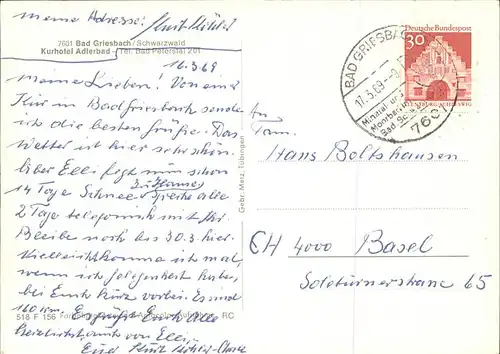 meine Adresse: Kurt Köhler
7601 Bad Griesbach/Schwarzwald
Kurhotel Adlerbad - (Tel. Bad Peterstal 201
16.3.69
meine Lieben! Von einer
Kur in Bad Griesbach sende
ich die besten Grüße. Das
Wetter ist hier sehr schön.
Über Elli liegt nun schon
14 Tage Schnee zu Hause. Spreche alle
2 Tage telefonisch mit ihr.
Bleibe noch bis 30.3. hier.
Vielleicht komme ich mal,
wenn ich Gelegenheit habe,
bei Euch kurz vorbei. Es sind
160 km. Es grüßt Euch Alle
auch von Elli.
Euer Kurt
518 F 156
RC
Gebr. Metz, Tübingen
Deutsche Bundespost
30
FLENSBURG/SCHLESWIG
BAD GRIESBACH
17.3.69
Mineral- und
Moorbad
7601
An
Fam.
Hans Boltshauser
CH 4000 Basel
Solothurnerstrasse 65